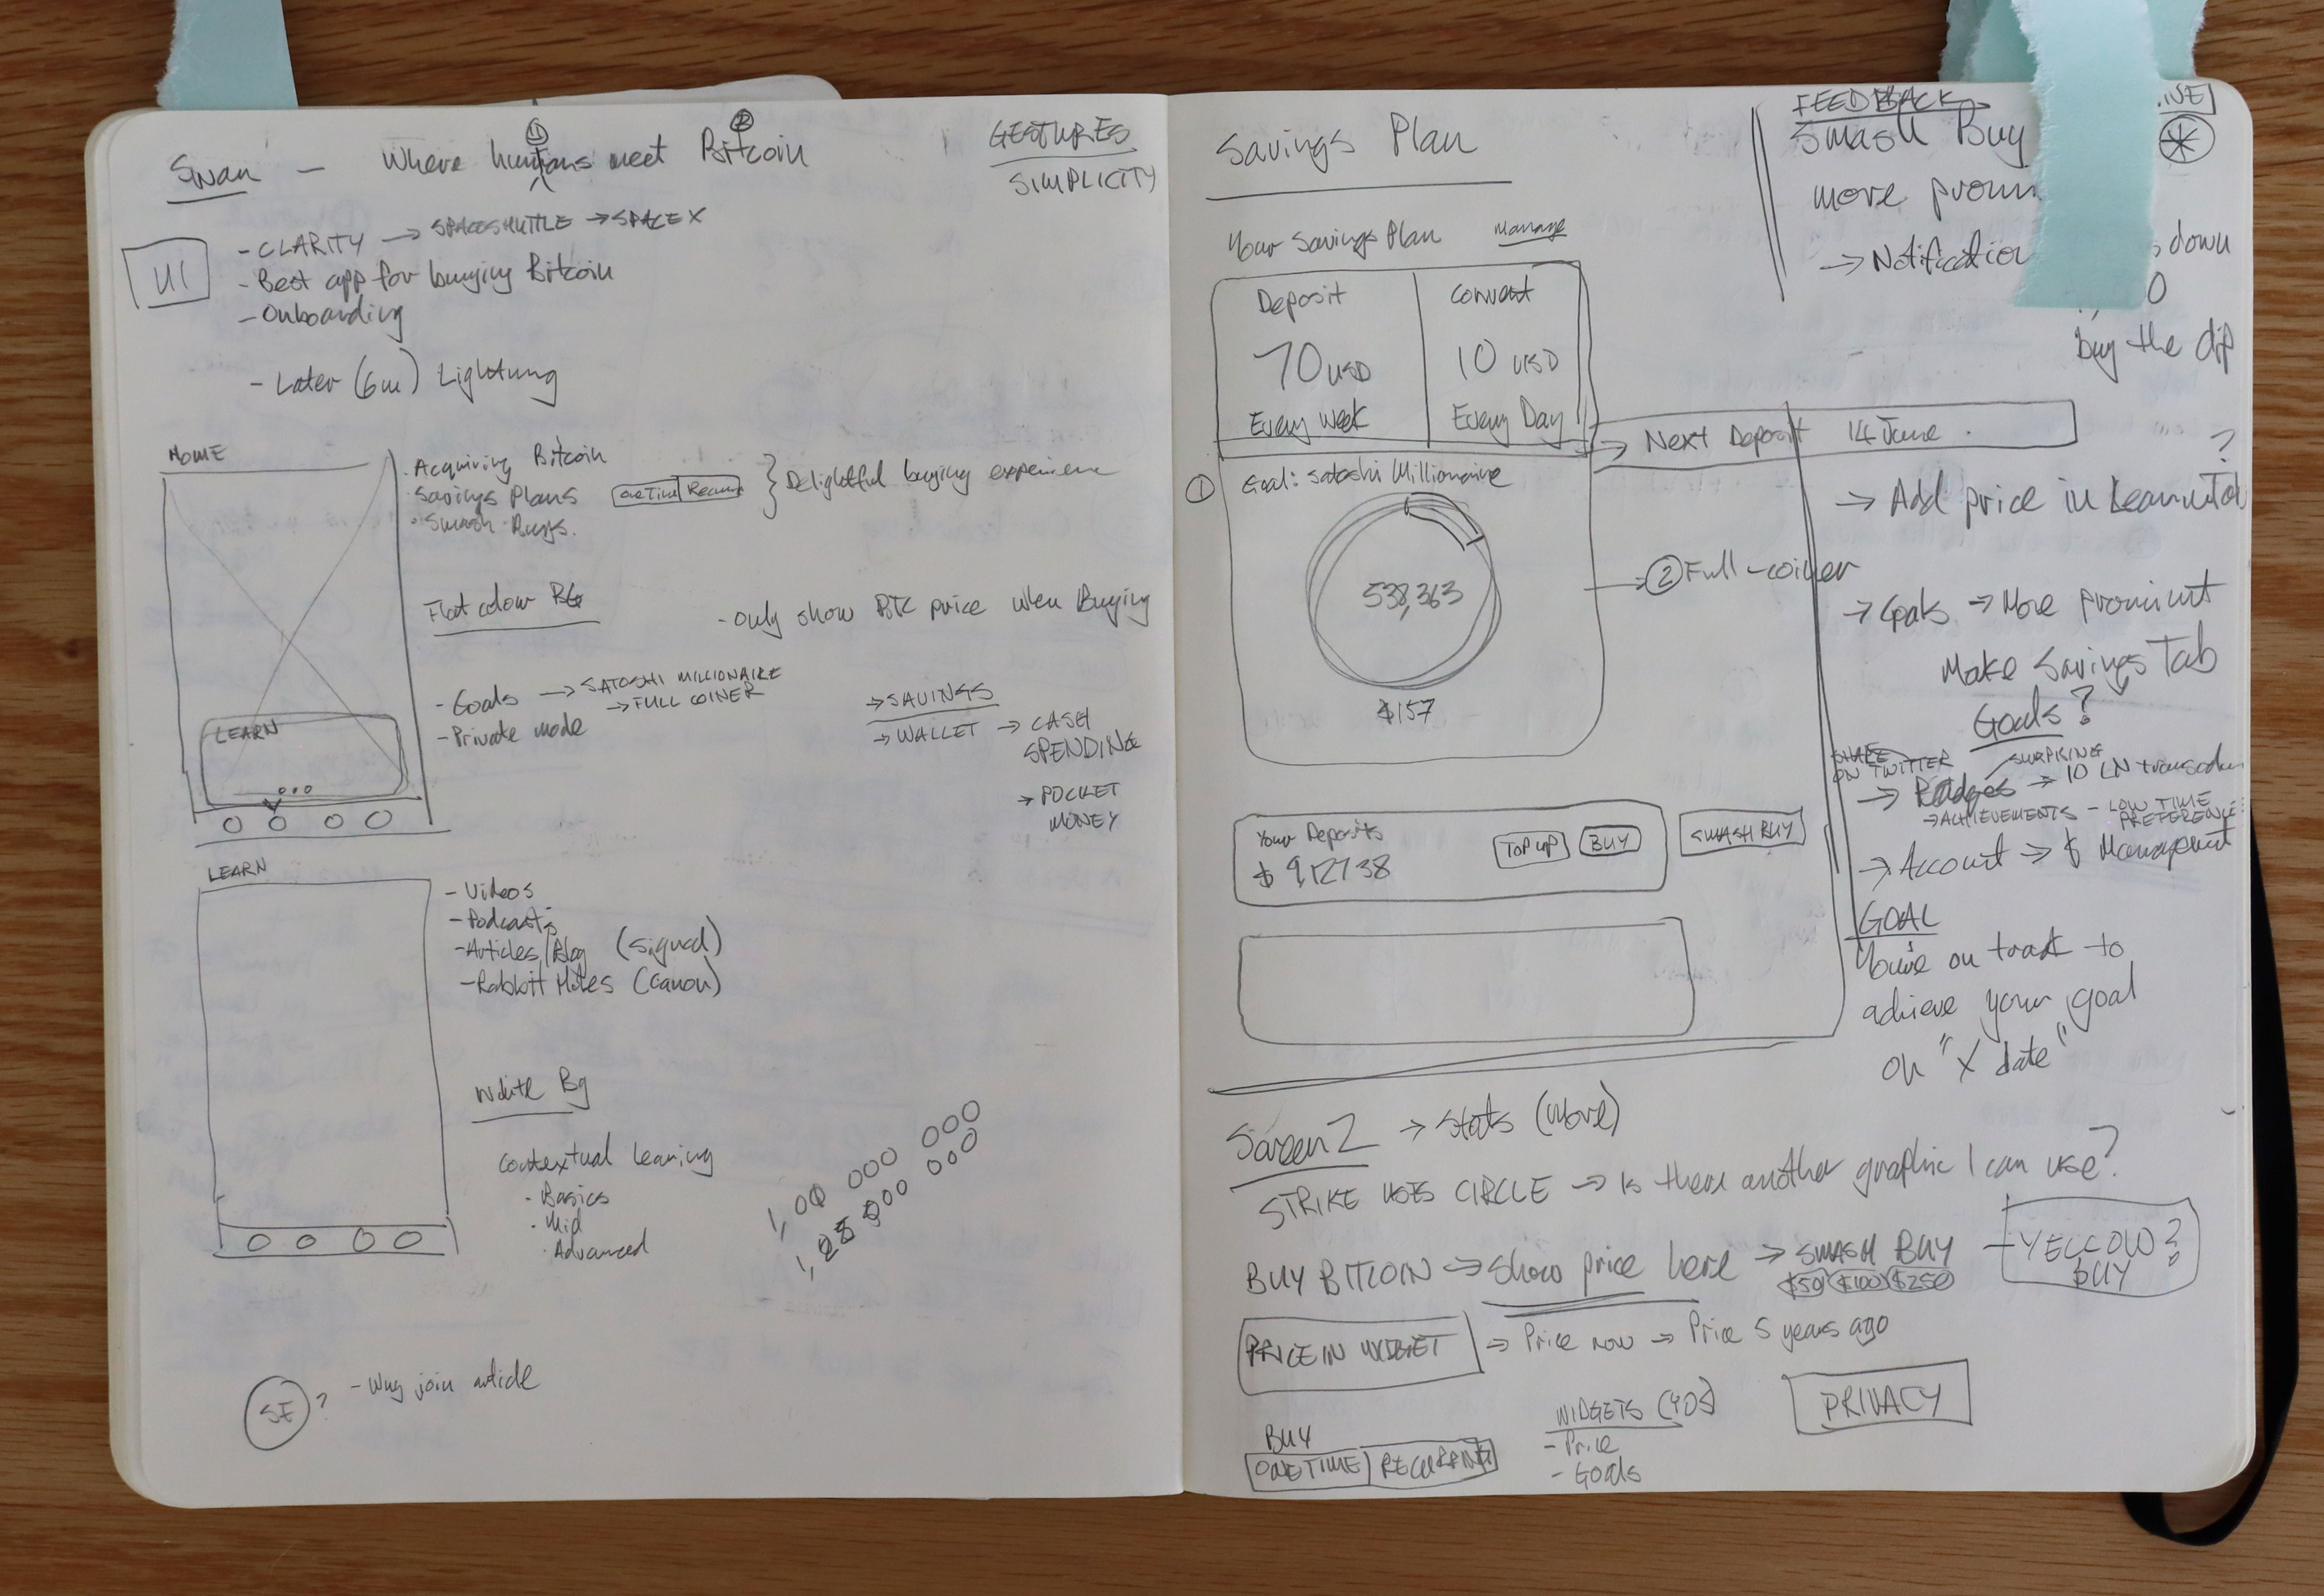 Swan — Where humans meet Bitcoin
1
2
GESTURES
SIMPLICITY
UI
- CLARITY → SPACESHUTTLE → SPACE X
- Best app for buying Bitcoin
- Onboarding
- Later (6m) Lightning
HOME
· Acquiring Bitcoin
· Savings Plans
· Smash Buys.
One Time
Delightful buying experience
Flat colour BG
- Only show BTC price when Buying
- Goals → SATOSHI MILLIONAIRE
→ FULL COINER
- Private mode
→ SAVINGS
→ WALLET → CASH
SPENDING
→ POCKET
MONEY
LEARN
LEARN
- Videos
- Podcasts
- Articles/Blog (Signal)
- Rabbit Holes (Canon)
White Bg
Contextual learning
· Basics
· Mid
· Advanced
000 000
000
SE ?
- Why join article
Savings Plan
Your Savings Plan
Manage
Deposit
70 USD
Every week
Convert
10 USD
Every Day
→ Next Deposit 14 June .
1
Goal: Satoshi Millionaire
538,363
$157
→ 2 Full-coiner
Your Deposits
TOP UP
BUY
SMASH BUY
FEEDBACK
Smash Buy
more
→ Notification
down
buy the dip
?
→ Add price in Learn Tab
→ Goals → More prominent
Make Savings Tab
Goals?
SHARE
ON TWITTER
SURPRISING
→ Badges → 10 LN transactions
→ ACHIEVEMENTS - LOW TIME
PREFERENCE
→ Account → $ Management
GOAL
You're on track to
achieve your goal
on "X date"
Screen 2 → Stats (More)
STRIKE USES CIRCLE → Is there another graphic I can use?
BUY BITCOIN → Show price here → SMASH BUY
$50 $100 $250
YELLOW?
BUY
PRICE IN WIDGET → Price now → Price 5 years ago
PRIVACY
BUY
ONE TIME
RECURRING
WIDGETS
- Price
- Goals